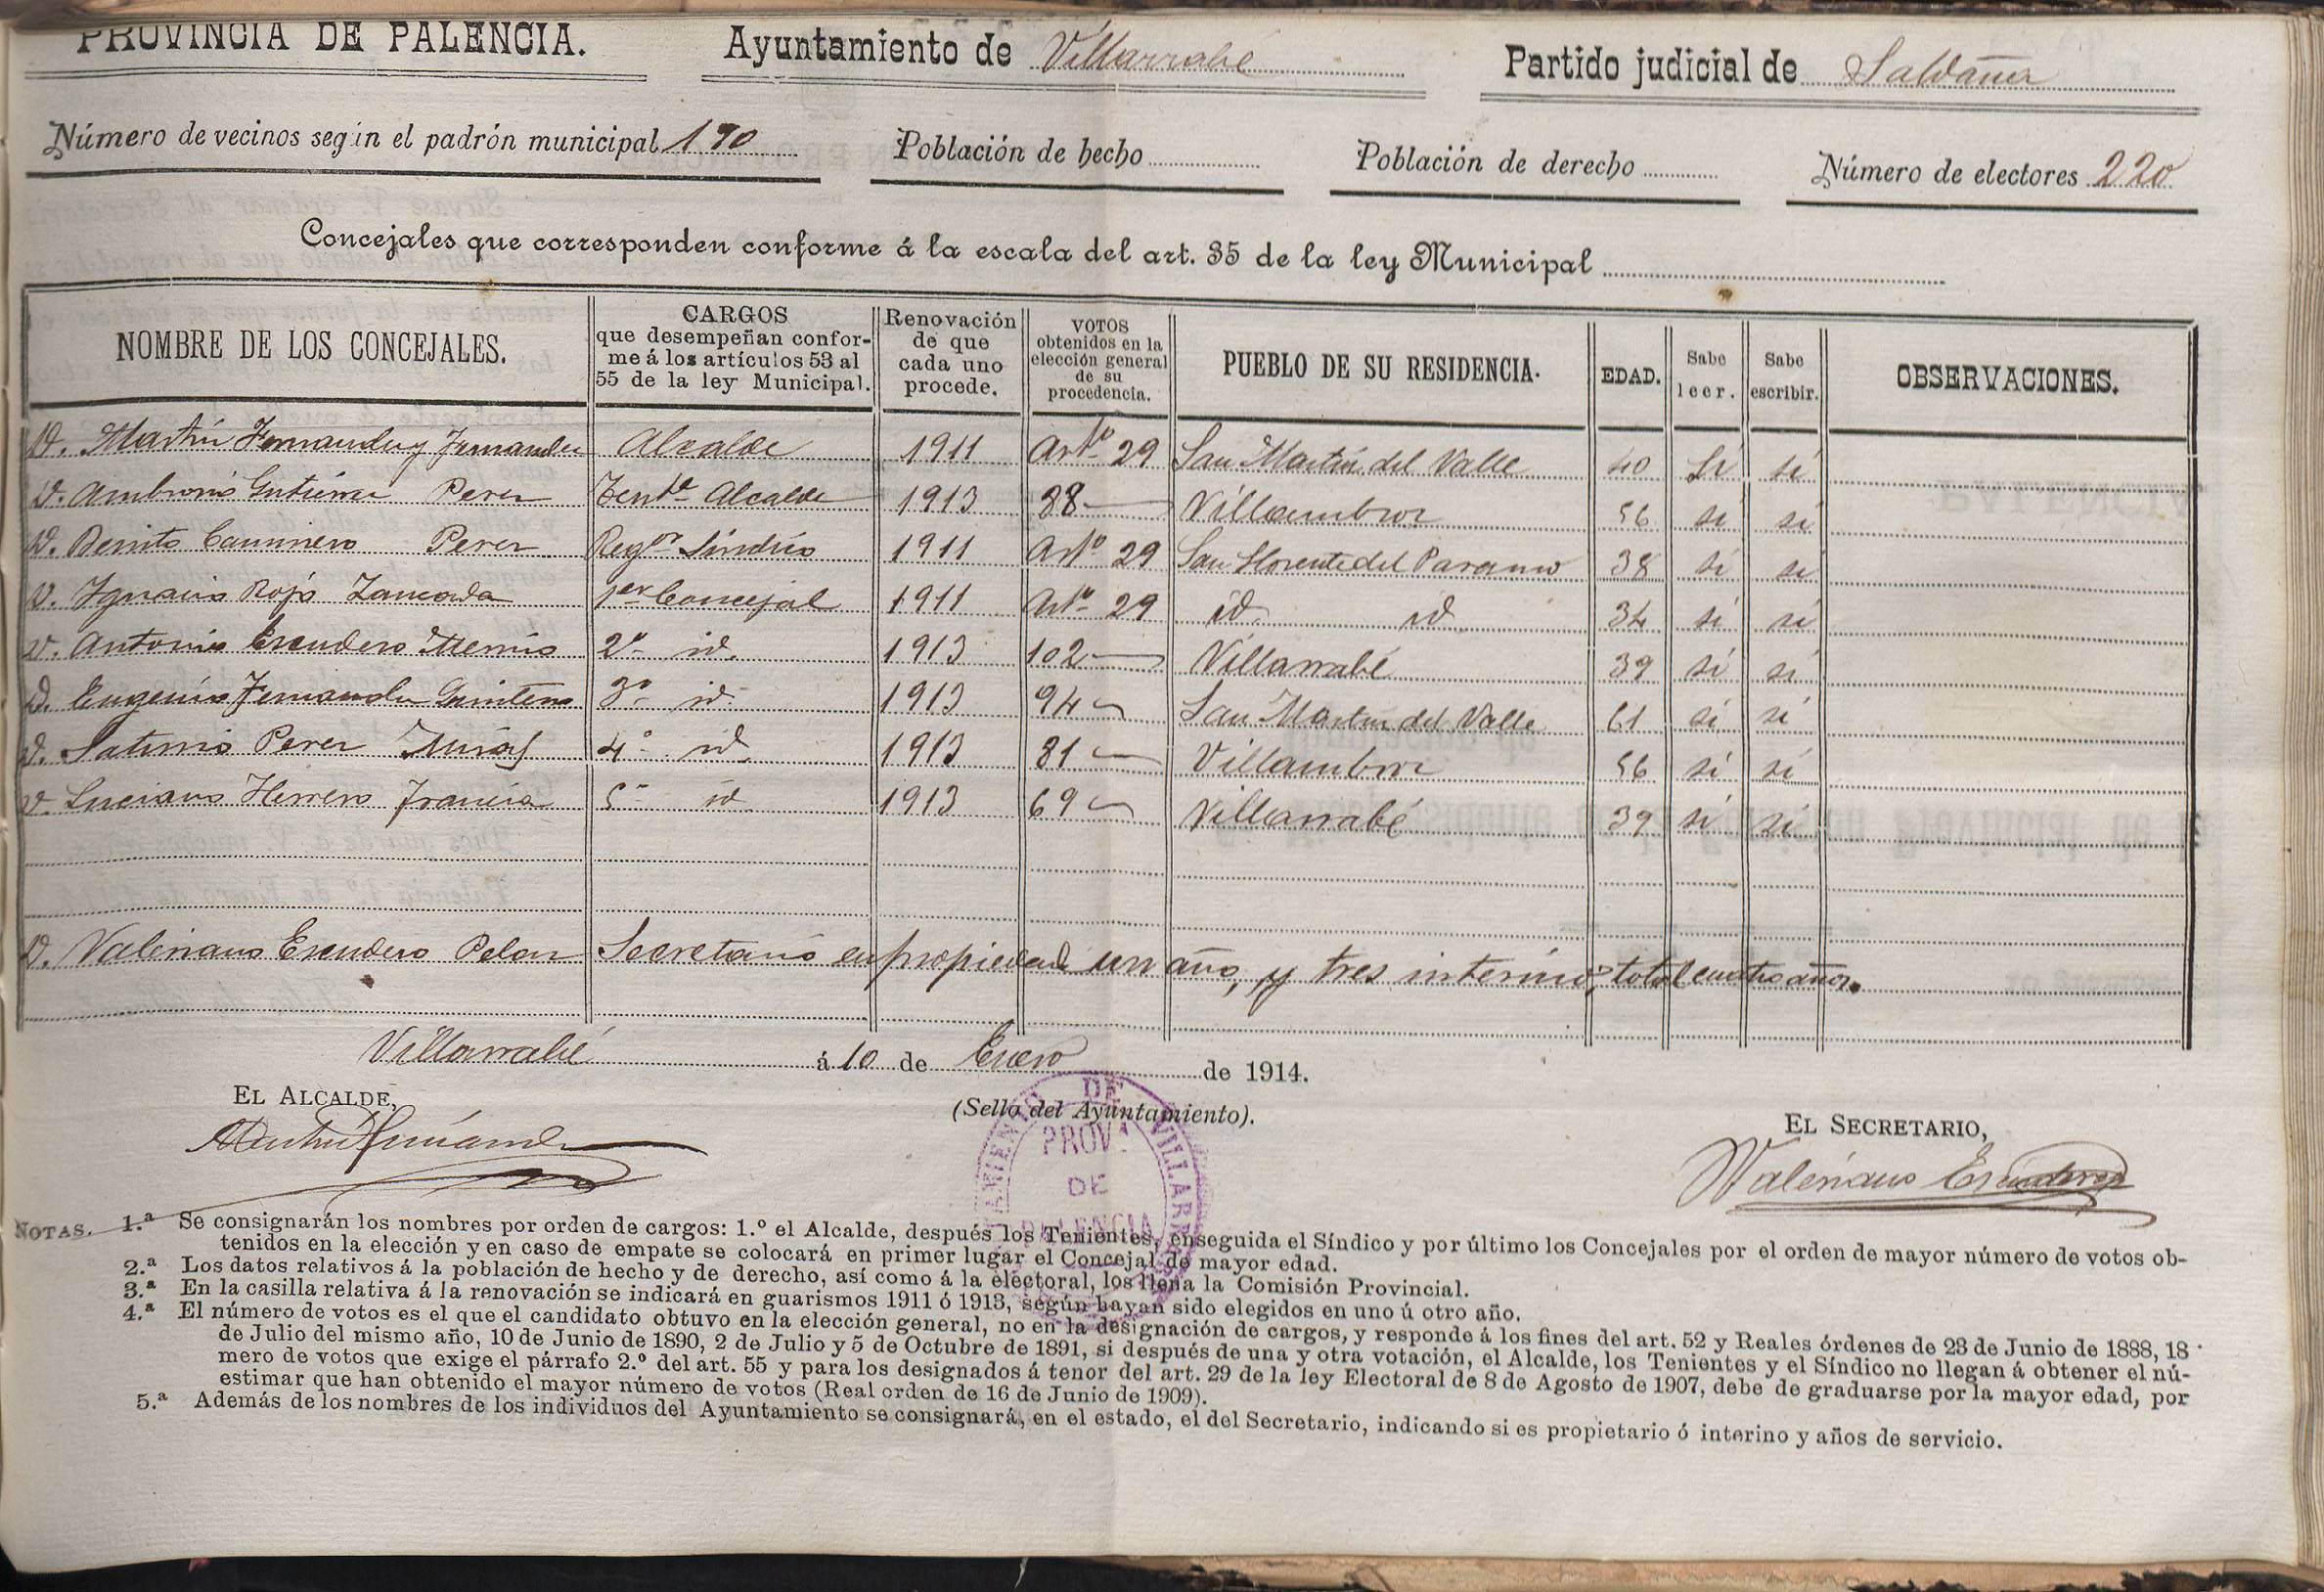 PROVINCIA DE PALENCIA. Ayuntamiento de Villarrabé Partido judicial de Saldaña
Número de vecinos según el padrón municipal 190 Población de hecho Población de derecho Número de electores 220
Concejales que corresponden conforme á la escala del art. 35 de la ley Municipal
NOMBRE DE LOS CONCEJALES. CARGOS que desempeñan conforme á los artículos 53 al 55 de la ley Municipal. Renovación de que cada uno procede. VOTOS obtenidos en la elección general de su procedencia. PUEBLO DE SU RESIDENCIA. EDAD. Sabe leer. Sabe escribir. OBSERVACIONES.
D. Martín Fernandez Fernandez Alcalde 1911 Artº 29 San Martín del Valle 40 Si si
D. Ambrosio Gutierrez Perez Tente Alcalde 1913 88 Villambroz 56 si si
D. Benito Caminero Perez Regor Síndico 1911 Artº 29 San Llorente del Paramo 38 si si
D. Ignacio Rojo Zancada 1er Concejal 1911 Artº 29 id id 34 si si
D. Antonio Escudero Merino 2º id. 1913 102 Villarrabé 39 si si
D. Eugenio Fernandez 3º id. 1913 94 San Martin del Valle 61 si si
D. Saturnio Perez 4º id 1913 81 Villambroz 56 si si
D. Luciano Herrero Francia 5º id 1913 69 Villarrabé 39 si si
D. Valeriano Escudero Pelaz Secretario en propiedad un año, y tres interino, total cuatro años.
Villarrabé á 10 de Enero de 1914.
EL ALCALDE, (Sello del Ayuntamiento). EL SECRETARIO,
Martin Fernandez Valeriano Escudero
DE VILLARR
PROVA
DE
PALENCIA
NOTAS. 1.ª Se consignarán los nombres por orden de cargos: 1.º el Alcalde, después los Tenientes, enseguida el Síndico y por último los Concejales por el orden de mayor número de votos ob-
tenidos en la elección y en caso de empate se colocará en primer lugar el Concejal de mayor edad.
2.ª Los datos relativos á la población de hecho y de derecho, así como á la electoral, los llena la Comisión Provincial.
3.ª En la casilla relativa á la renovación se indicará en guarismos 1911 ó 1913, según hayan sido elegidos en uno ú otro año.
4.ª El número de votos es el que el candidato obtuvo en la elección general, no en la designación de cargos, y responde á los fines del art. 52 y Reales órdenes de 23 de Junio de 1888, 18
de Julio del mismo año, 10 de Junio de 1890, 2 de Julio y 5 de Octubre de 1891, si después de una y otra votación, el Alcalde, los Tenientes y el Síndico no llegan á obtener el nú-
mero de votos que exige el párrafo 2.º del art. 55 y para los designados á tenor del art. 29 de la ley Electoral de 8 de Agosto de 1907, debe de graduarse por la mayor edad, por
estimar que han obtenido el mayor número de votos (Real orden de 16 de Junio de 1909).
5.ª Además de los nombres de los individuos del Ayuntamiento se consignará, en el estado, el del Secretario, indicando si es propietario ó interino y años de servicio.